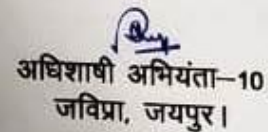 अधिशाषी अभियंता–10
जविप्रा, जयपुर।